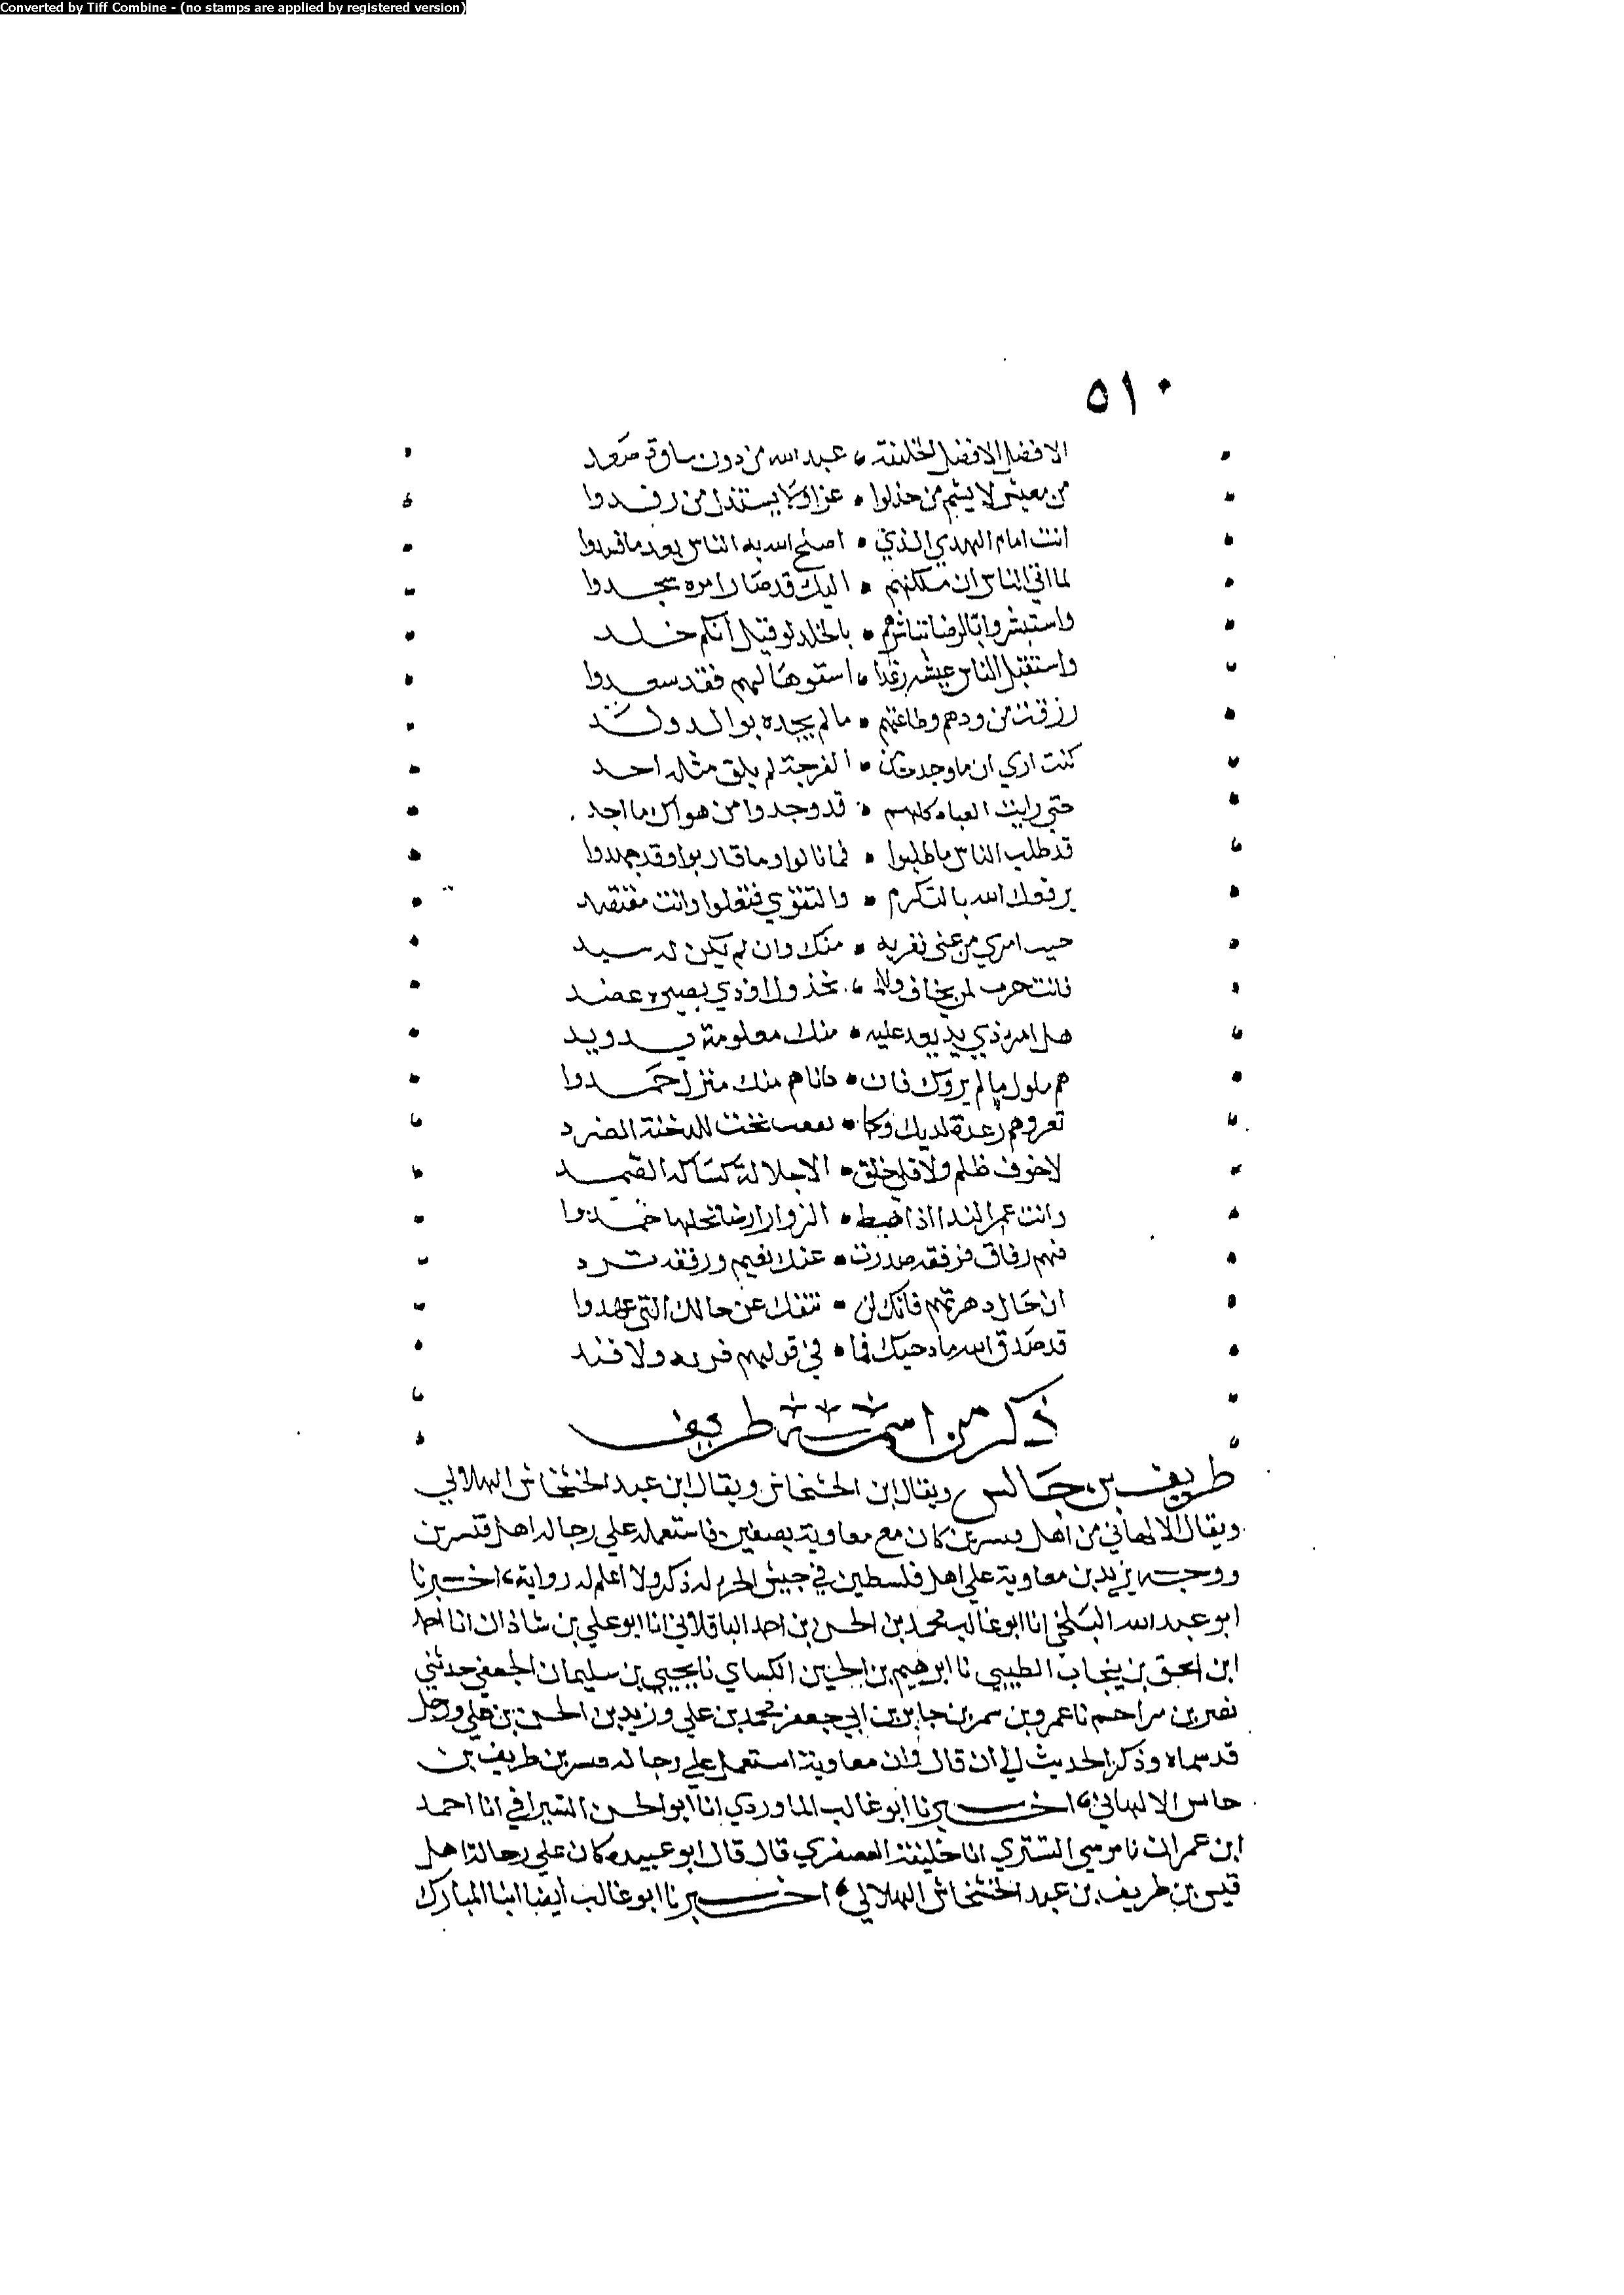 Converted by Tiff Combine - (no stamps are applied by registered version)
٥١٠
الافضل الافضل الخليفة عبد الله من دون ساوق صعد
من معشر لا يشم من خذلوا • عزا ولا يستذل من رفدوا
انت امام الهدي الذي • اصلح الله به الناس بعد ما فسدوا
لما اتي الناس ان ملكهم • اليك قد صار امره سجدوا
واستبشروا بالرضا تباشرهم • بالخلد لو قيل انكم خلد
واستقبل الناس عيشة رغدا اسقوها لهم فقد سعدوا
رزقت من ودهم وطاعتهم • ما لم يجده بوالد ولد
كنت اري ان ما وجدت من • الفرجة لم يلق مثله احد
حتي رايت العباد كلهم • قد وجدوا من هواك ما اجد
قد طلب الناس ما طلبوا • فما نالوا وما قاربوا وقد جهدوا
يرفعك الله بالتكرم • والتقوي فتعلوا وانت مقتصد
حسب امري من غني تقربه • منك وان لم يكن له سبد
فانت حرب لمن يخاف ولا مخذول اودي بصيره عضد
هل امرذي يد يعد عليه • منك معلومة يد ويد
هم ملول ما لم يروك فان • داناهم منك منزل خمدوا
تعروهم رعدة لديك وكا • تحت للدخنة الصرد
لا خوف ظلم ولا قلي خلق • الا جلالة كساكه الصمد
وانت غمر الندا اذا هبط • الزوار ارضا تحلها حمدوا
فهم رفاق فرفقة صدرت • عنك بغيم ورفقة ترد
ان حال دهر بهم فانك لن • تنفك عن حالك التي عهدوا
قد صدق الله مادحيك فما • في قولهم فريه ولا فند
ذكر من اسمه طريف
طريف بن حالس ويقال ابن الخشخاش ويقال ابن عبد الخشخاش الهلالي
ويقال الالهاني من اهل وسرين كان مع معاوية بصفين فاستعمله علي رجاله اهل قنسرين
ووجهه يزيد بن معاوية علي اهل فلسطين في جيش الحره له ذكر ولا اعلم له رواية اخبرنا
ابو عبد الله البلخي انا ابو غالب محمد بن الحسن بن احمد الباقلاني انا ابو علي بن شاذان انا احمد
ابن اسحق بن ينجاب الطيبي نا ابرهيم بن الحسين الكساي نا يحيي بن سليمان الجعفي حدثني
نصر بن مراحم نا عمرو بن سمر بن جابر بن ابي جعفر محمد بن علي وزيد بن الحسن بن علي ورجل
قد سماه وذكر الحديث الي ان قال وان معاوية استعمل علي رجاله وسرين طريف بن
حاس الالهاني اخبرنا ابو غالب الماوردي انا ابو الحسن السيرافي انا احمد
ابن عمران نا موسي التستري انا خليفة العصفري قال قال ابو عبيده كان علي رجالة اهل
قيس بن طريف بن عبد الخشخاش الهلالي اخبرنا ابو غالب ايضا ابنا المبارك